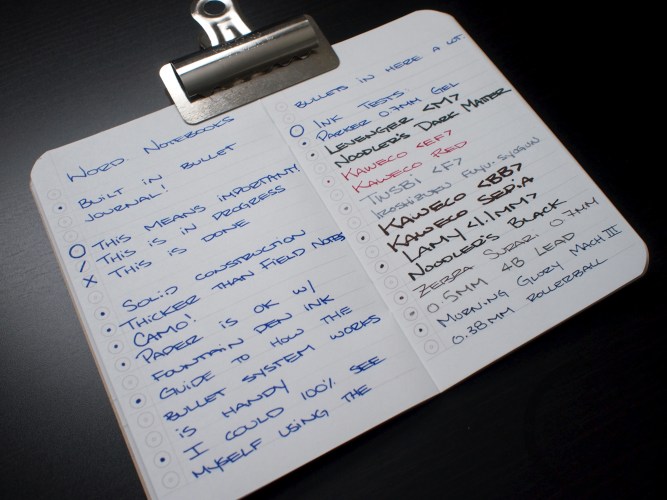 Word. Notebooks
Built in bullet
journal!
This means important!
This is in progress
This is done
Solid construction
Thicker than Field Notes
Camo!
Paper is ok w/
fountain pen ink
Guide to how the
bullet system works
is handy
I could 100% see
myself using the
bullets in here a lot.
Ink Tests:
Parker 0.7mm Gel
Levenger <M>
Noodler's Dark Matter
Kaweco <EF>
Kaweco Red
TWSBI <F>
Iroshizuku Fuyu-syogun
Kaweco <BB>
Kaweco Sepia
Lamy <1.1mm>
Noodler's Black
Zebra 0.7mm
0.5mm 4B Lead
Morning Glory Mach III
0.38mm rollerball